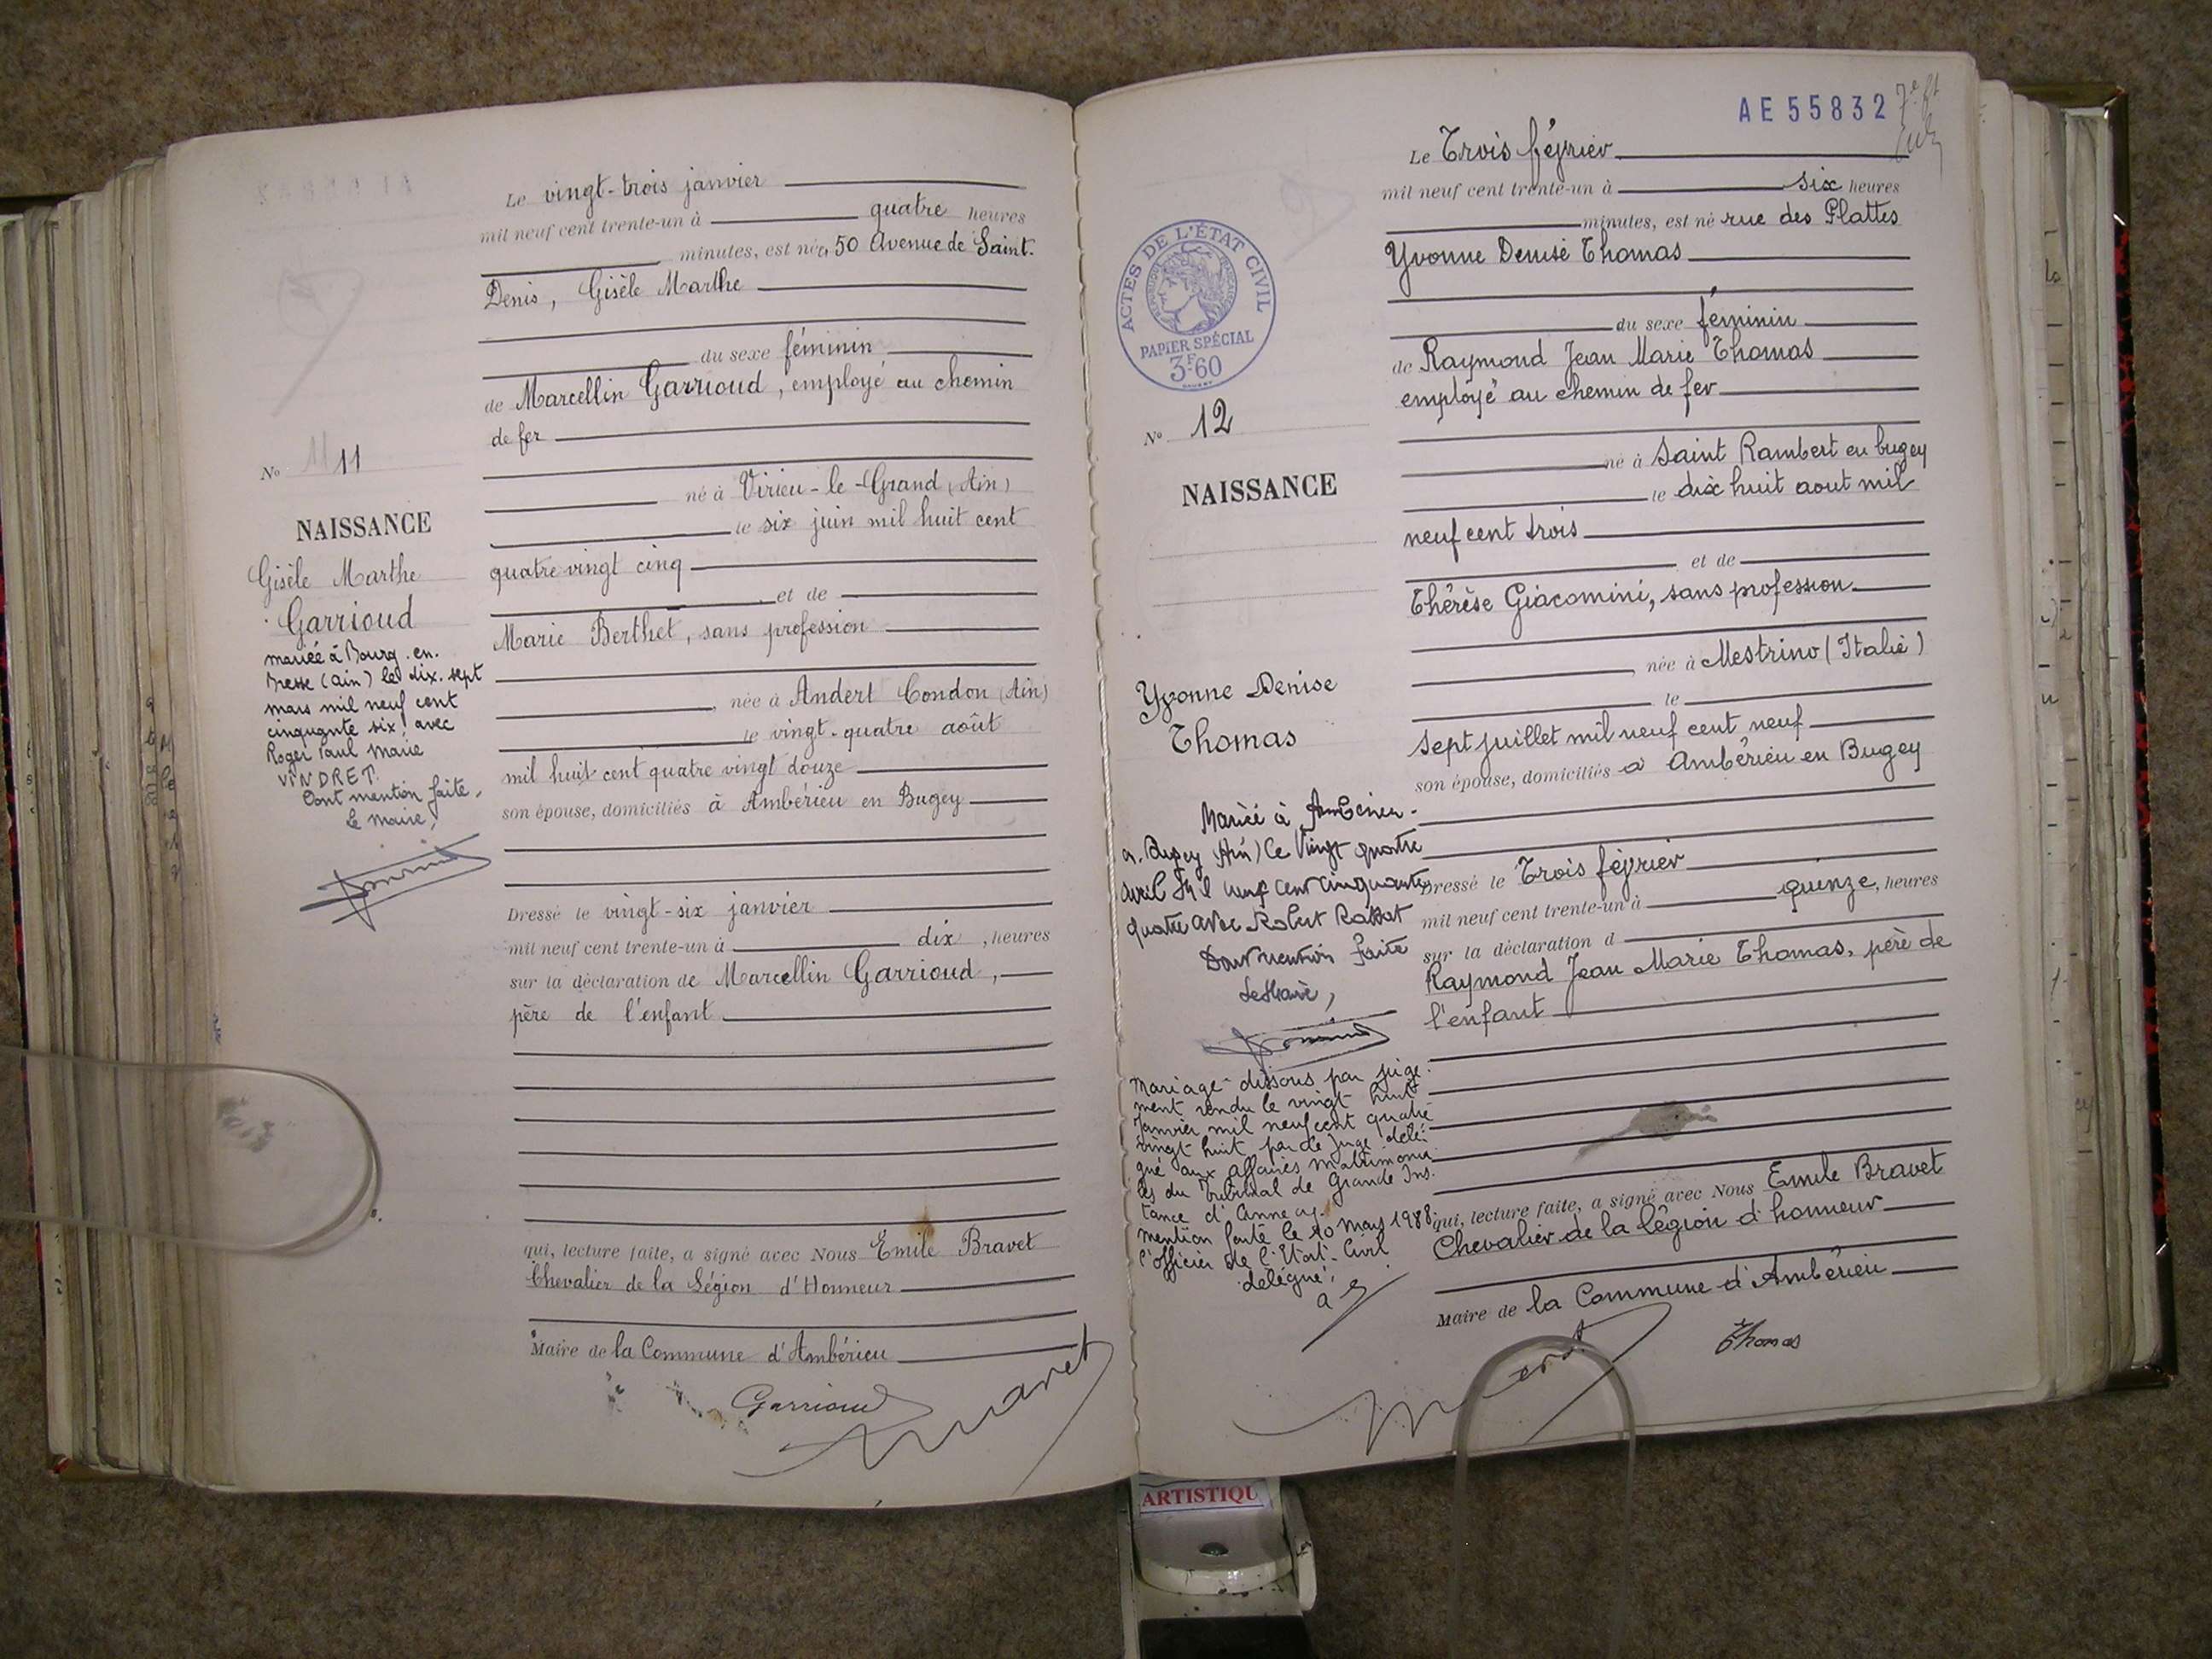 Le vingt-trois janvier
mil neuf cent trente-un à quatre heures
minutes, est née, 50 Avenue de Saint-
Denis, Gisèle Marthe
du sexe féminin
de Marcellin Garrioud, employé au chemin
de fer
né à Virieu-le-Grand (Ain)
le six juin mil huit cent
quatre vingt cinq
et de
Marie Berthet, sans profession
née à Andert Condon (Ain)
le vingt-quatre août
mil huit cent quatre vingt douze
son épouse, domiciliés à Ambérieu en Bugey
Dressé le vingt-six janvier
mil neuf cent trente-un à dix, heures
sur la déclaration de Marcellin Garrioud,
père de l'enfant
qui, lecture faite, a signé avec Nous Emile Bravet
Chevalier de la Légion d'Honneur
Maire de la Commune d'Ambérieu
Garrioud
Bravet
No 11
NAISSANCE
Gisèle Marthe
Garrioud
mariée à Bourg-en-
Bresse (Ain) le dix-sept
mars mil neuf cent
cinquante six, avec
Roger Paul Marie
VINDRET.
Dont mention faite,
le Maire,
AE 55832
Le Trois février
mil neuf cent trente-un à six heures
minutes, est né rue des Plattes
Yvonne Denise Thomas
du sexe féminin
de Raymond Jean Marie Thomas
employé au chemin de fer
né à Saint Rambert en bugey
le dix huit aout mil
neuf cent trois
et de
Thérèse Giacomini, sans profession
née à Mestrino (Italie)
le
sept juillet mil neuf cent neuf
son épouse, domiciliés à Ambérieu en Bugey
Dressé le Trois février
mil neuf cent trente-un à quinze, heures
sur la déclaration d
Raymond Jean Marie Thomas, père de
l'enfant
qui, lecture faite, a signé avec Nous Emile Bravet
Chevalier de la légion d'honneur
Maire de la Commune d'Ambérieu
Thomas
ACTES DE L'ÉTAT CIVIL
RÉPUBLIQUE FRANÇAISE
PAPIER SPÉCIAL
3F60
No 12
NAISSANCE
Yvonne Denise
Thomas
Mariée à Ambérieu-
en-Bugey (Ain) le vingt quatre
avril mil neuf cent cinquante
quatre avec Robert
Dont mention faite
Le Maire,
Mariage dissous par juge-
ment rendu le vingt huit
Janvier mil neuf cent quatre
vingt huit par le Juge délé-
gué aux affaires matrimonia-
les du Tribunal de Grande Ins-
tance d'Annecy.
mention faite le 10 Mars 1988
l'officier de l'Etat-Civil
délégué,
ARTISTIQU